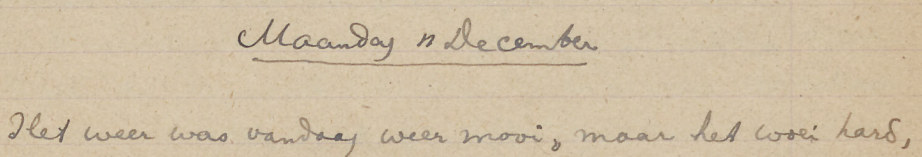 Maandag 11 December
Het weer was vandaag weer mooi, maar het woei hard,